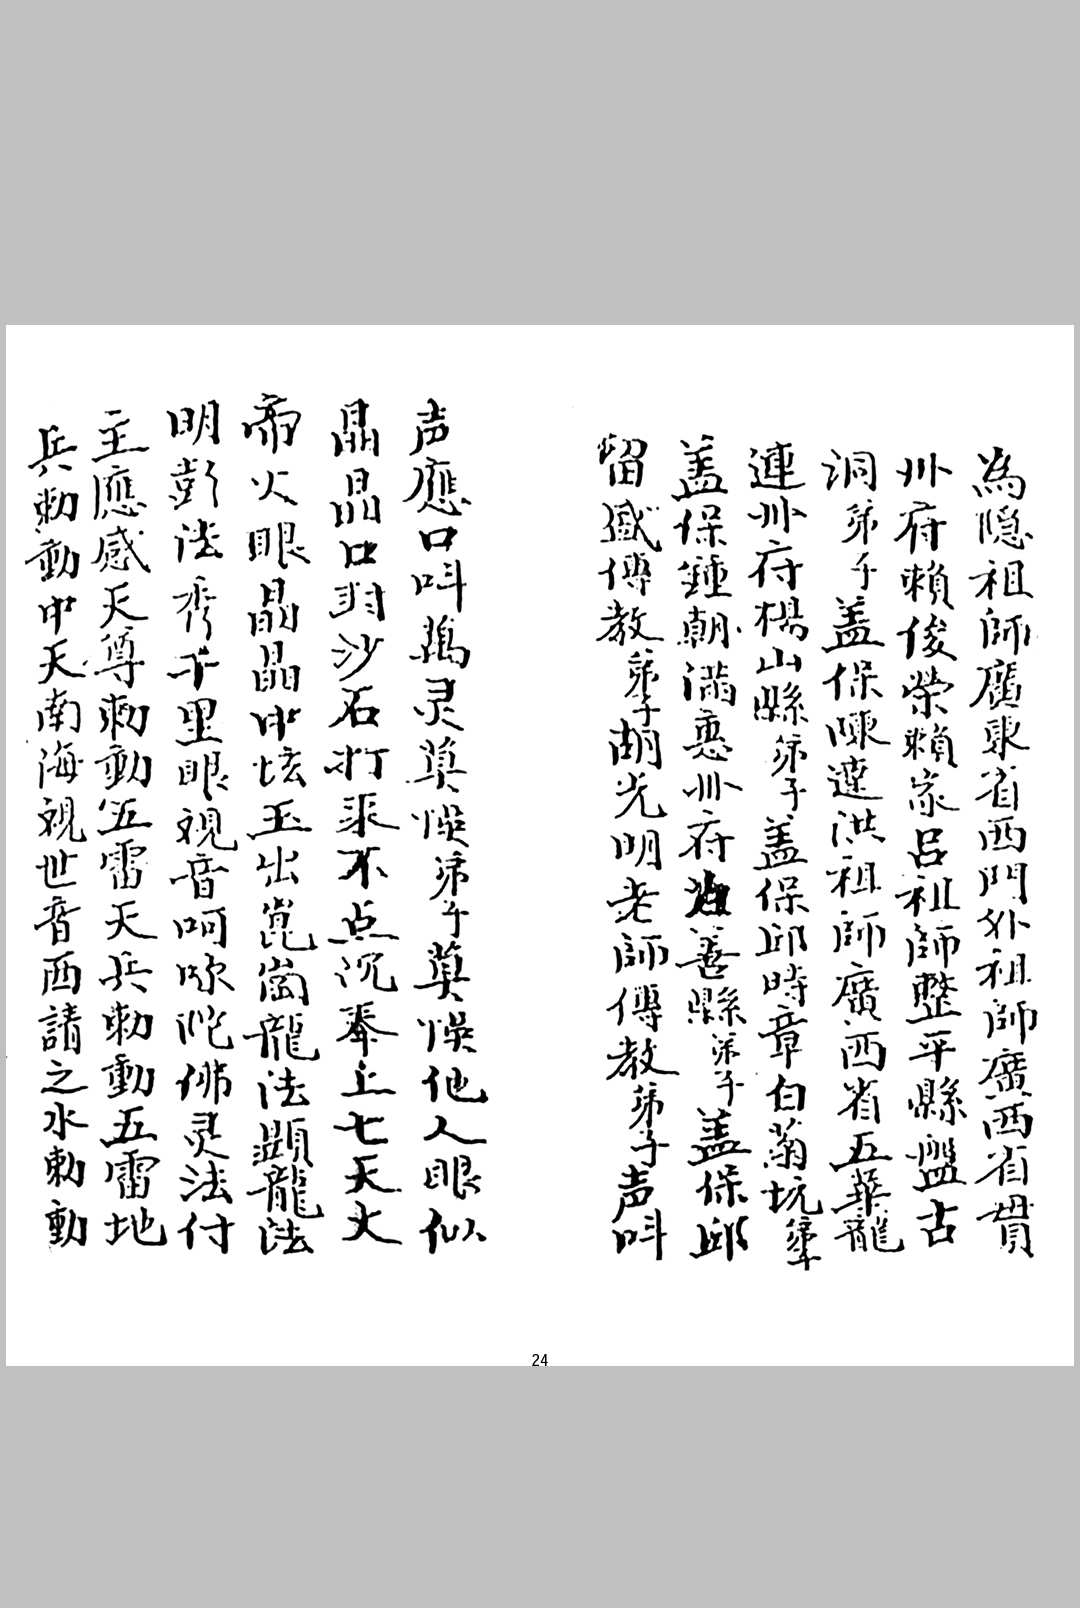 為隐祖師廣東省西門外祖師廣西省貫
州府賴俊榮賴家吕祖師整平縣盤古
洞弟子盖保陳達洪祖師廣西省五華龍
連州府楊山縣弟子盖保邱時章白菊坑弟子
盖保鍾朝滿惠州府善縣弟子盖保邱
留盛傳教弟子胡光明老師傳教弟子声呌
声應口呌萬灵莫惧弟子莫惧他人眼似
晶晶口沙石打来不点沉奉上七天大
帝火眼晶晶中坛玉出崑崙龍法顕龍法
明彭法秀千里眼視音呵陀佛灵法付
主應感天尊勑動五雷天兵勑動五雷地
兵勑動中天南海視世音西請之水勑動
24